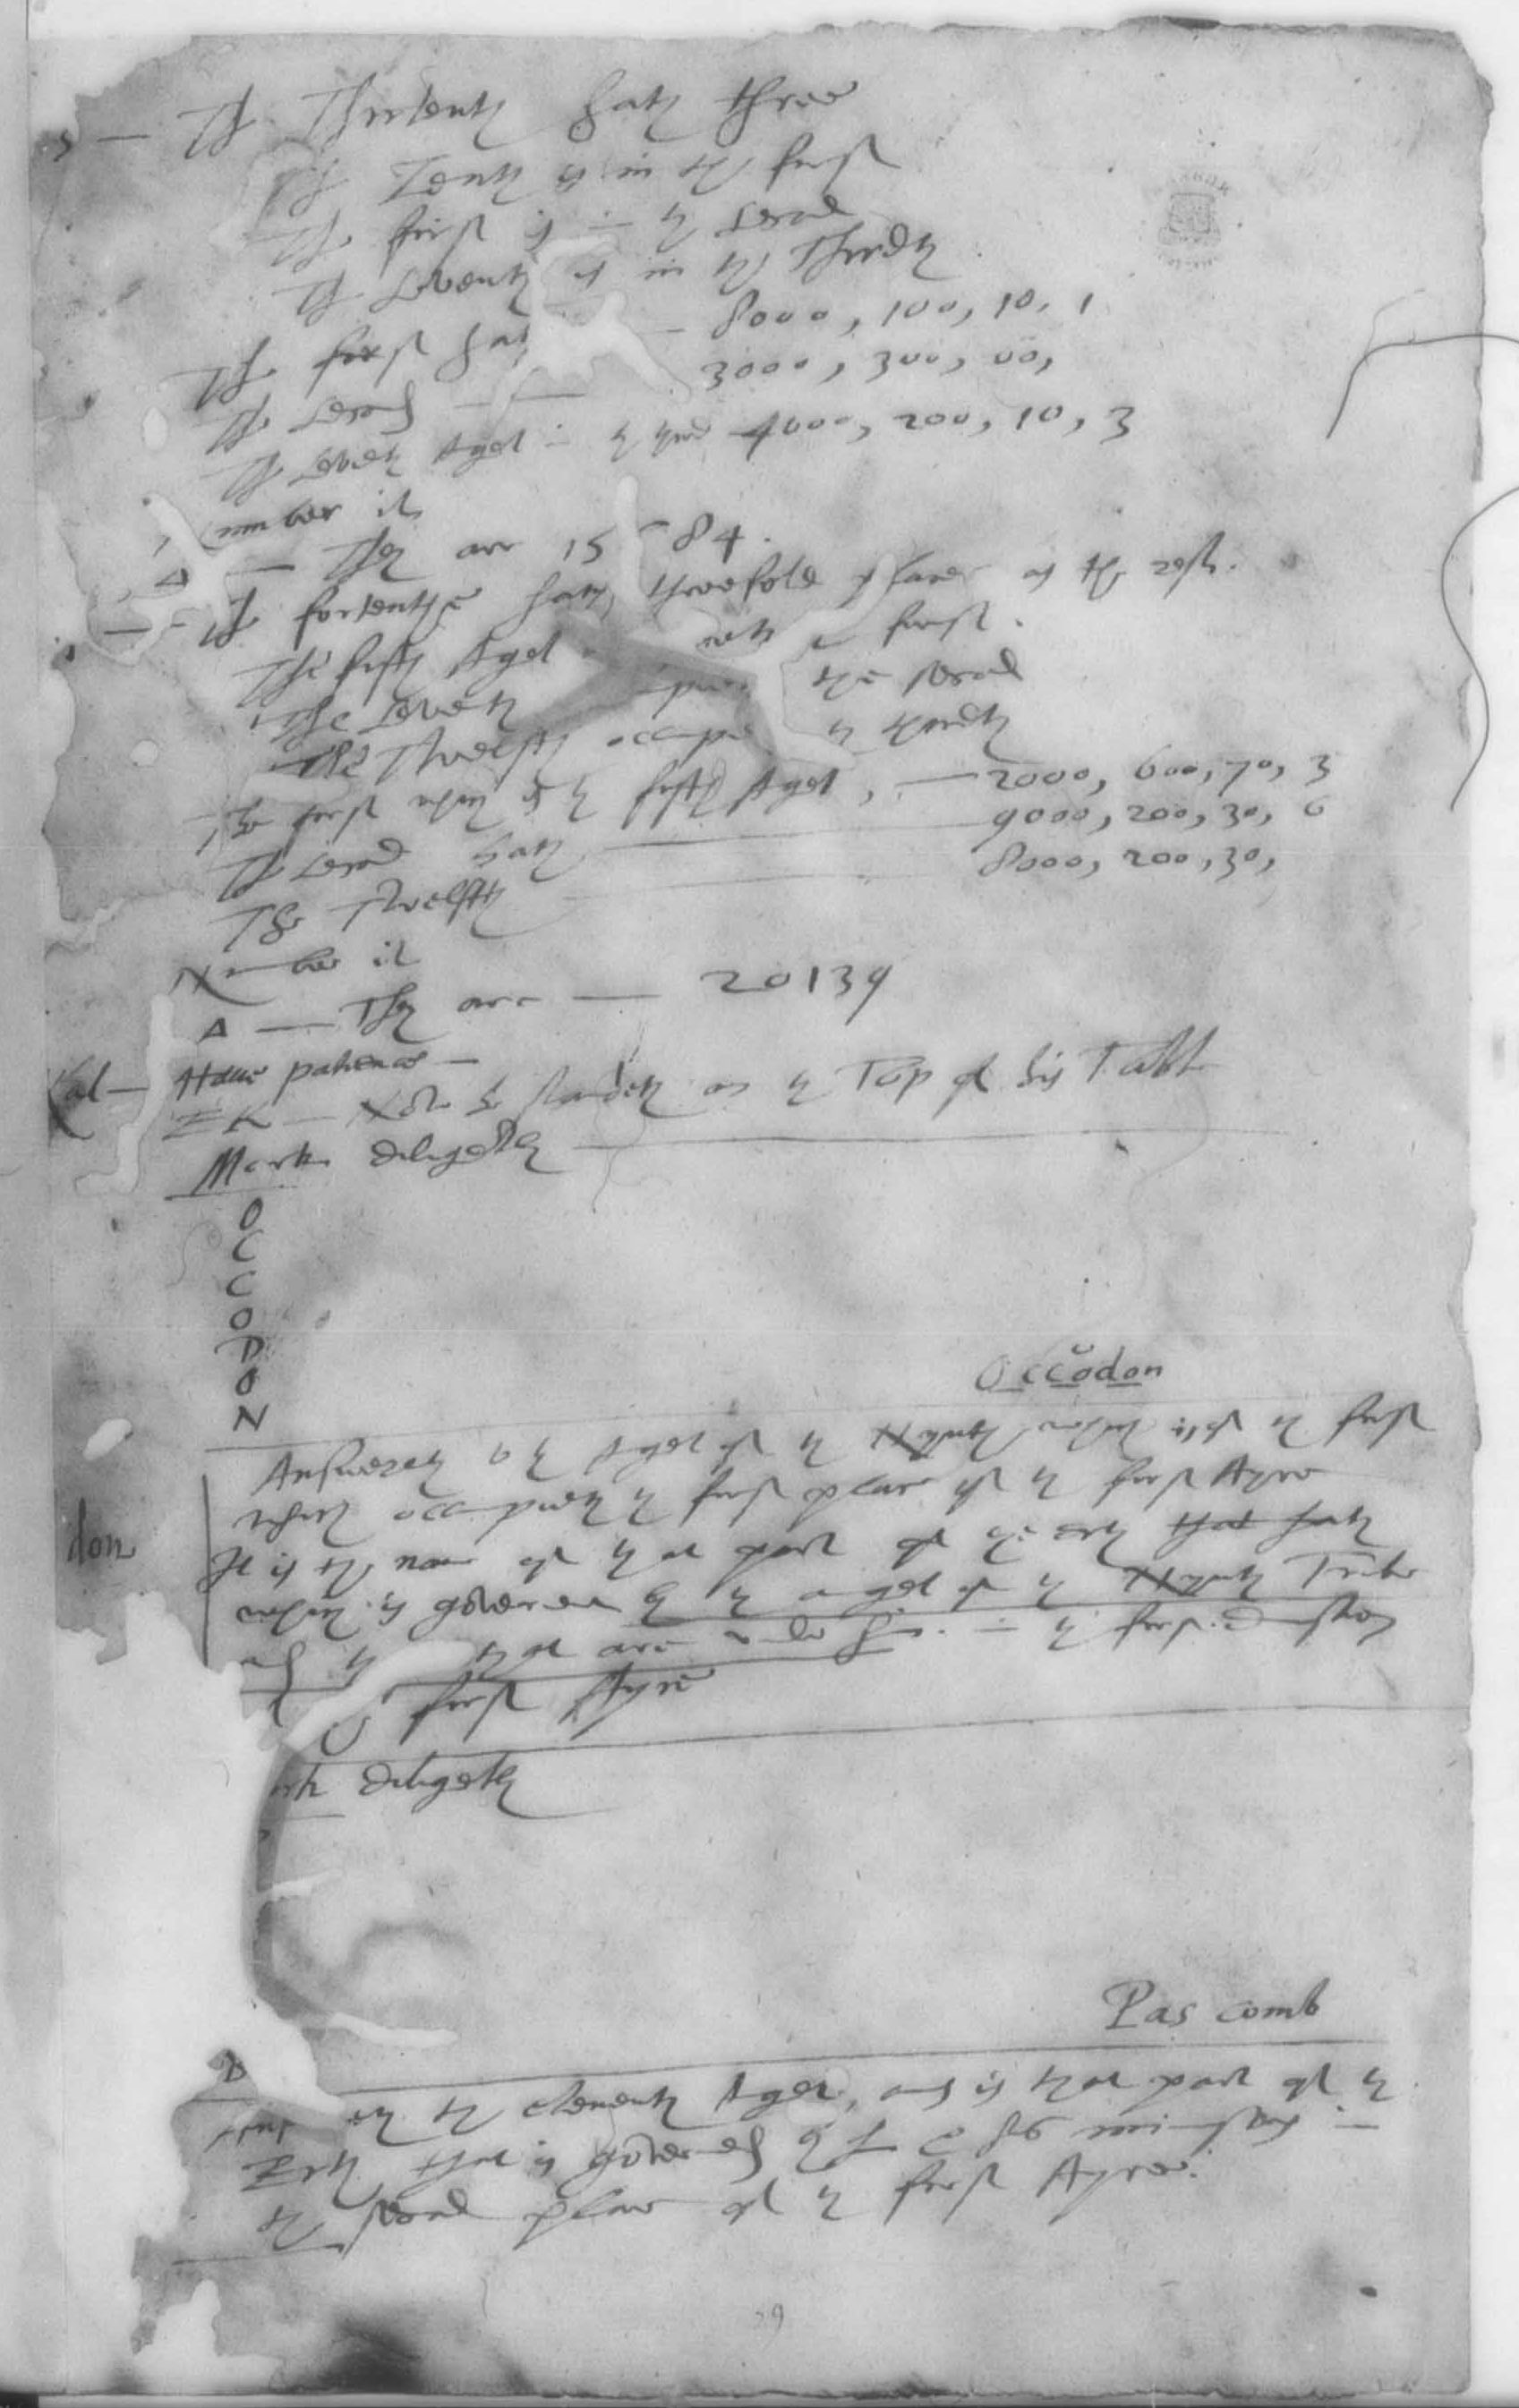 — Th Thirtenth hath three
Th Tenth is in the first
The first is in the second
Th Seventh is in the Thirdth
The first hat — 8000, 100, 10, 1
The second — 3000, 300, 00,
Th Seventh Angel in the third 4000, 200, 10, 3
number it
Δ — They are 15 84.
— Th fortenthe hath threefold places as the rest.
The fifth Angel first.
The Seventh the second
The Twelfth occupi the thirdth
The first which is the fifth Angel, — 2000, 600, 70, 3
Th second hath 9000, 200, 30, 6
The Twelfth 8000, 200, 30,
Number it
Δ — They are — 20139
Nal — Haue patience —
EK — Now he standeth on the Top of his Table
Mark diligently
O
C
C
O
D
O
N
Occodon
Answereth to the Angel of the Nynth which is of the first
which occupieth the first place of the first Ayre
don
It is the name of that part of the erth that hath
which is governed by the angel of the Nynth Tribe
and that are under him. in the first division
first Ayre
ark diligently
Pas comb
eth the eleventh Angel, and is that part of the
Erth that is governed ministers in
the second place of the first Ayre.